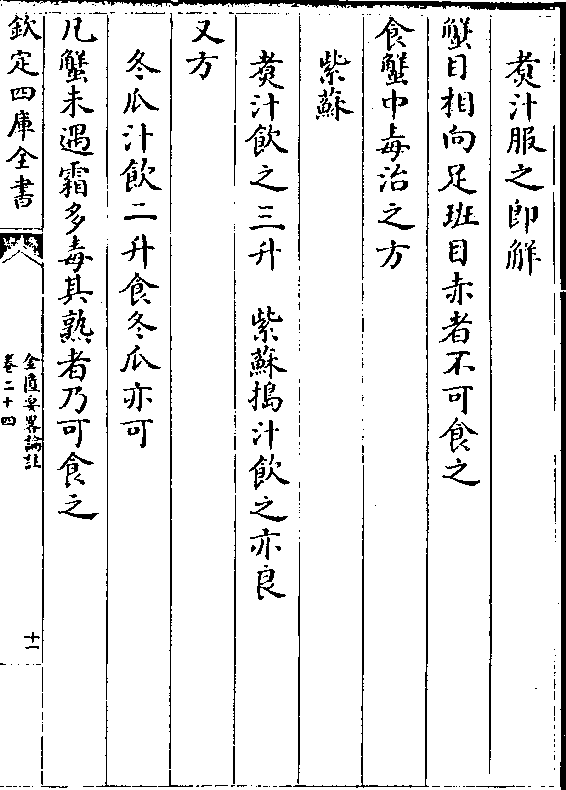 煑汁服之即解
蟹目相向足班目赤者不可食之
食蟹中毒治之方
紫蘇
煑汁飲之三升　紫蘇搗汁飲之亦良
又方
冬瓜汁飲二升食冬瓜亦可
凡蟹未遇霜多毒其熟者乃可食之
欽定四庫全書
金匱要畧論註
卷二十四
十一